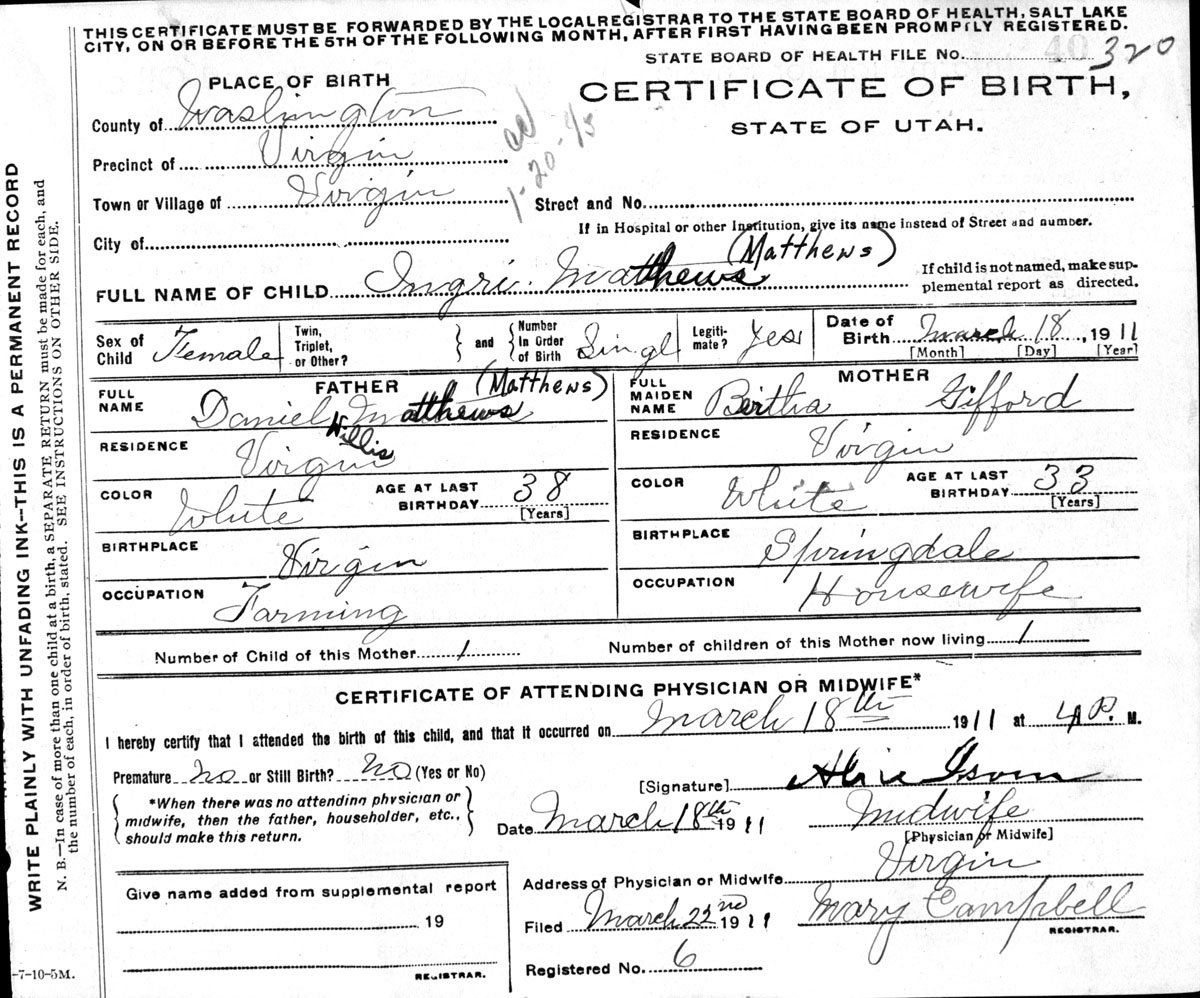 THIS CERTIFICATE MUST BE FORWARDED BY THE LOCAL REGISTRAR TO THE STATE BOARD OF HEALTH, SALT LAKE
CITY, ON OR BEFORE THE 5TH OF THE FOLLOWING MONTH, AFTER FIRST HAVING BEEN PROMPTLY REGISTERED.
STATE BOARD OF HEALTH FILE No. 40 320
PLACE OF BIRTH
CERTIFICATE OF BIRTH,
STATE OF UTAH.
County of Washington
Precinct of Virgin
1-20-45
Town or Village of Virgin Street and No.
If in Hospital or other Institution, give its name instead of Street and number.
City of
(Matthews)
FULL NAME OF CHILD Ingri. Matthews
If child is not named, make sup-
plemental report as directed.
Sex of Child Female Twin, Triplet, or Other? and Number In Order of Birth Singl Legiti- mate? Yes Date of Birth March 18, 1911
[Month] [Day] [Year]
FATHER (Matthews)
FULL NAME Daniel Willis Matthews
RESIDENCE Virgin
COLOR White AGE AT LAST BIRTHDAY 38
[Years]
BIRTHPLACE Virgin
OCCUPATION Farming
MOTHER
FULL MAIDEN NAME Bertha Gifford
RESIDENCE Virgin
COLOR White AGE AT LAST BIRTHDAY 33
[Years]
BIRTHPLACE Springdale
OCCUPATION Housewife
Number of Child of this Mother 1 Number of children of this Mother now living 1
CERTIFICATE OF ATTENDING PHYSICIAN OR MIDWIFE*
I hereby certify that I attended the birth of this child, and that it occurred on March 18th 1911 at 4 P. M.
Premature no or Still Birth? no (Yes or No)
[Signature] Alice Isom
*When there was no attending physician or
midwife, then the father, householder, etc.,
should make this return.
Date March 18th 1911 Midwife
[Physician or Midwife]
Address of Physician or Midwife Virgin
Give name added from supplemental report
19
REGISTRAR.
Filed March 22nd 1911 Mary Campbell
REGISTRAR.
Registered No. 6
-7-10-5M.
WRITE PLAINLY WITH UNFADING INK--THIS IS A PERMANENT RECORD
N. B.—In case of more than one child at a birth, a SEPARATE RETURN must be made for each, and
the number of each, in order of birth, stated. SEE INSTRUCTIONS ON OTHER SIDE.